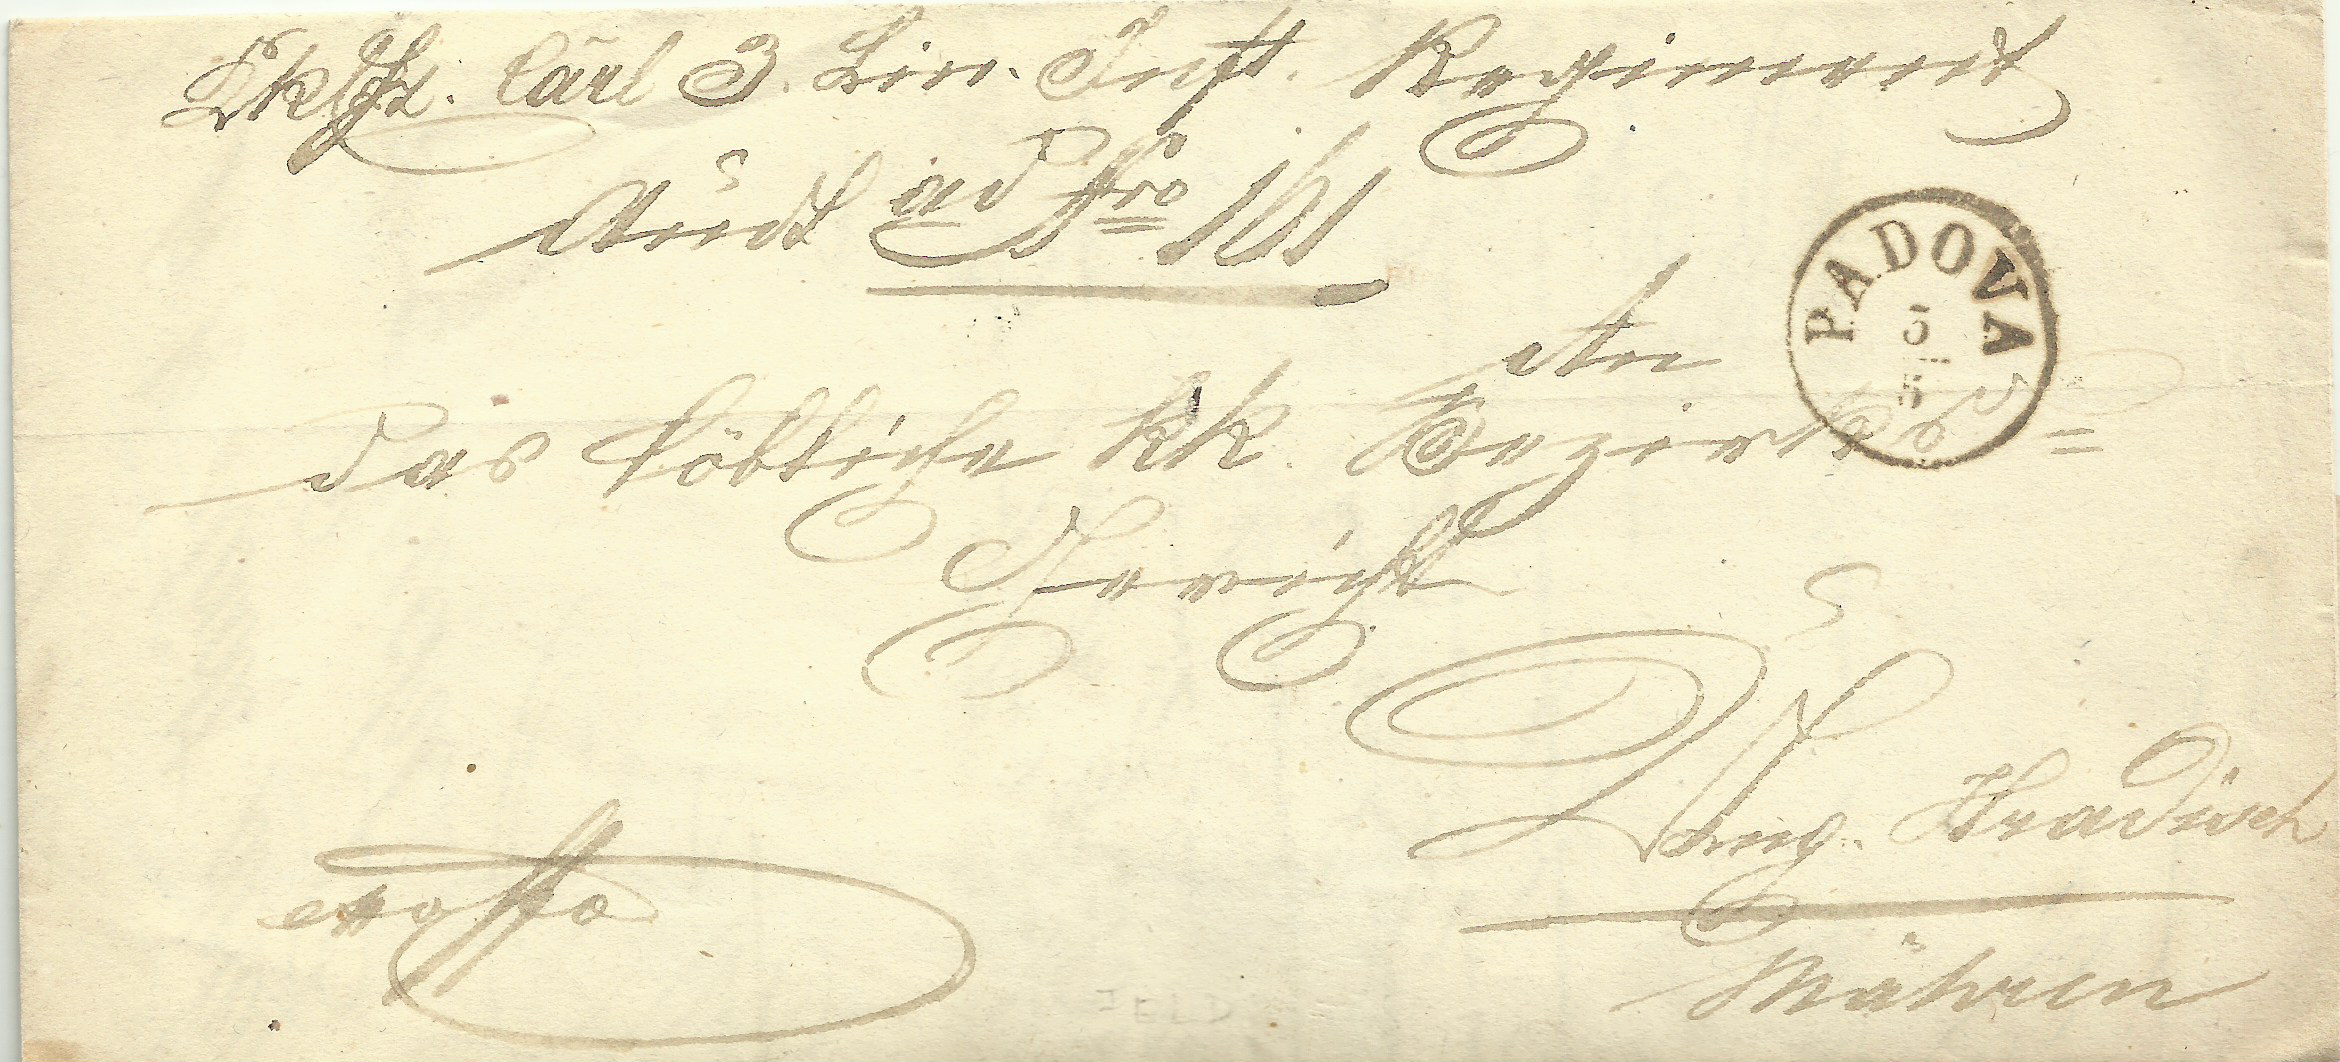 kk Ehz. Carl 3. Lin. Inft. Regiment
Aud ad Nro 161
PADOVA
5
5
An
das löbliche kk. Bezirks=
Gericht
Ung. Hradisch
ex offo
Mähren
FELD